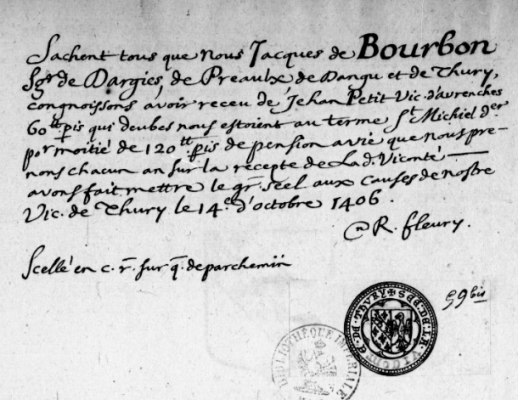 Sachent tous que Nous Jacques de Bourbon
Sgr de Dargies, de Preaulx de Dangu et de Thury,
congnoissons avoir receu de Jehan Petit Vic. d'avrenches
60tt pis qui deubes nous estoient au terme St Michiel der
por moitié de 120tt pis de pension a vie que nous pre-
nons chacun an sur la recepte de Lad. Viconté
avons fait mettre le gr. seel aux causes de nostre
Vic. de Thury le 14e d'octobre 1406.
R. fleury.
Scellé en c. r. sur q. de parchemin
59 bis
BIBLIOTHÈQUE IMPÉRIALE